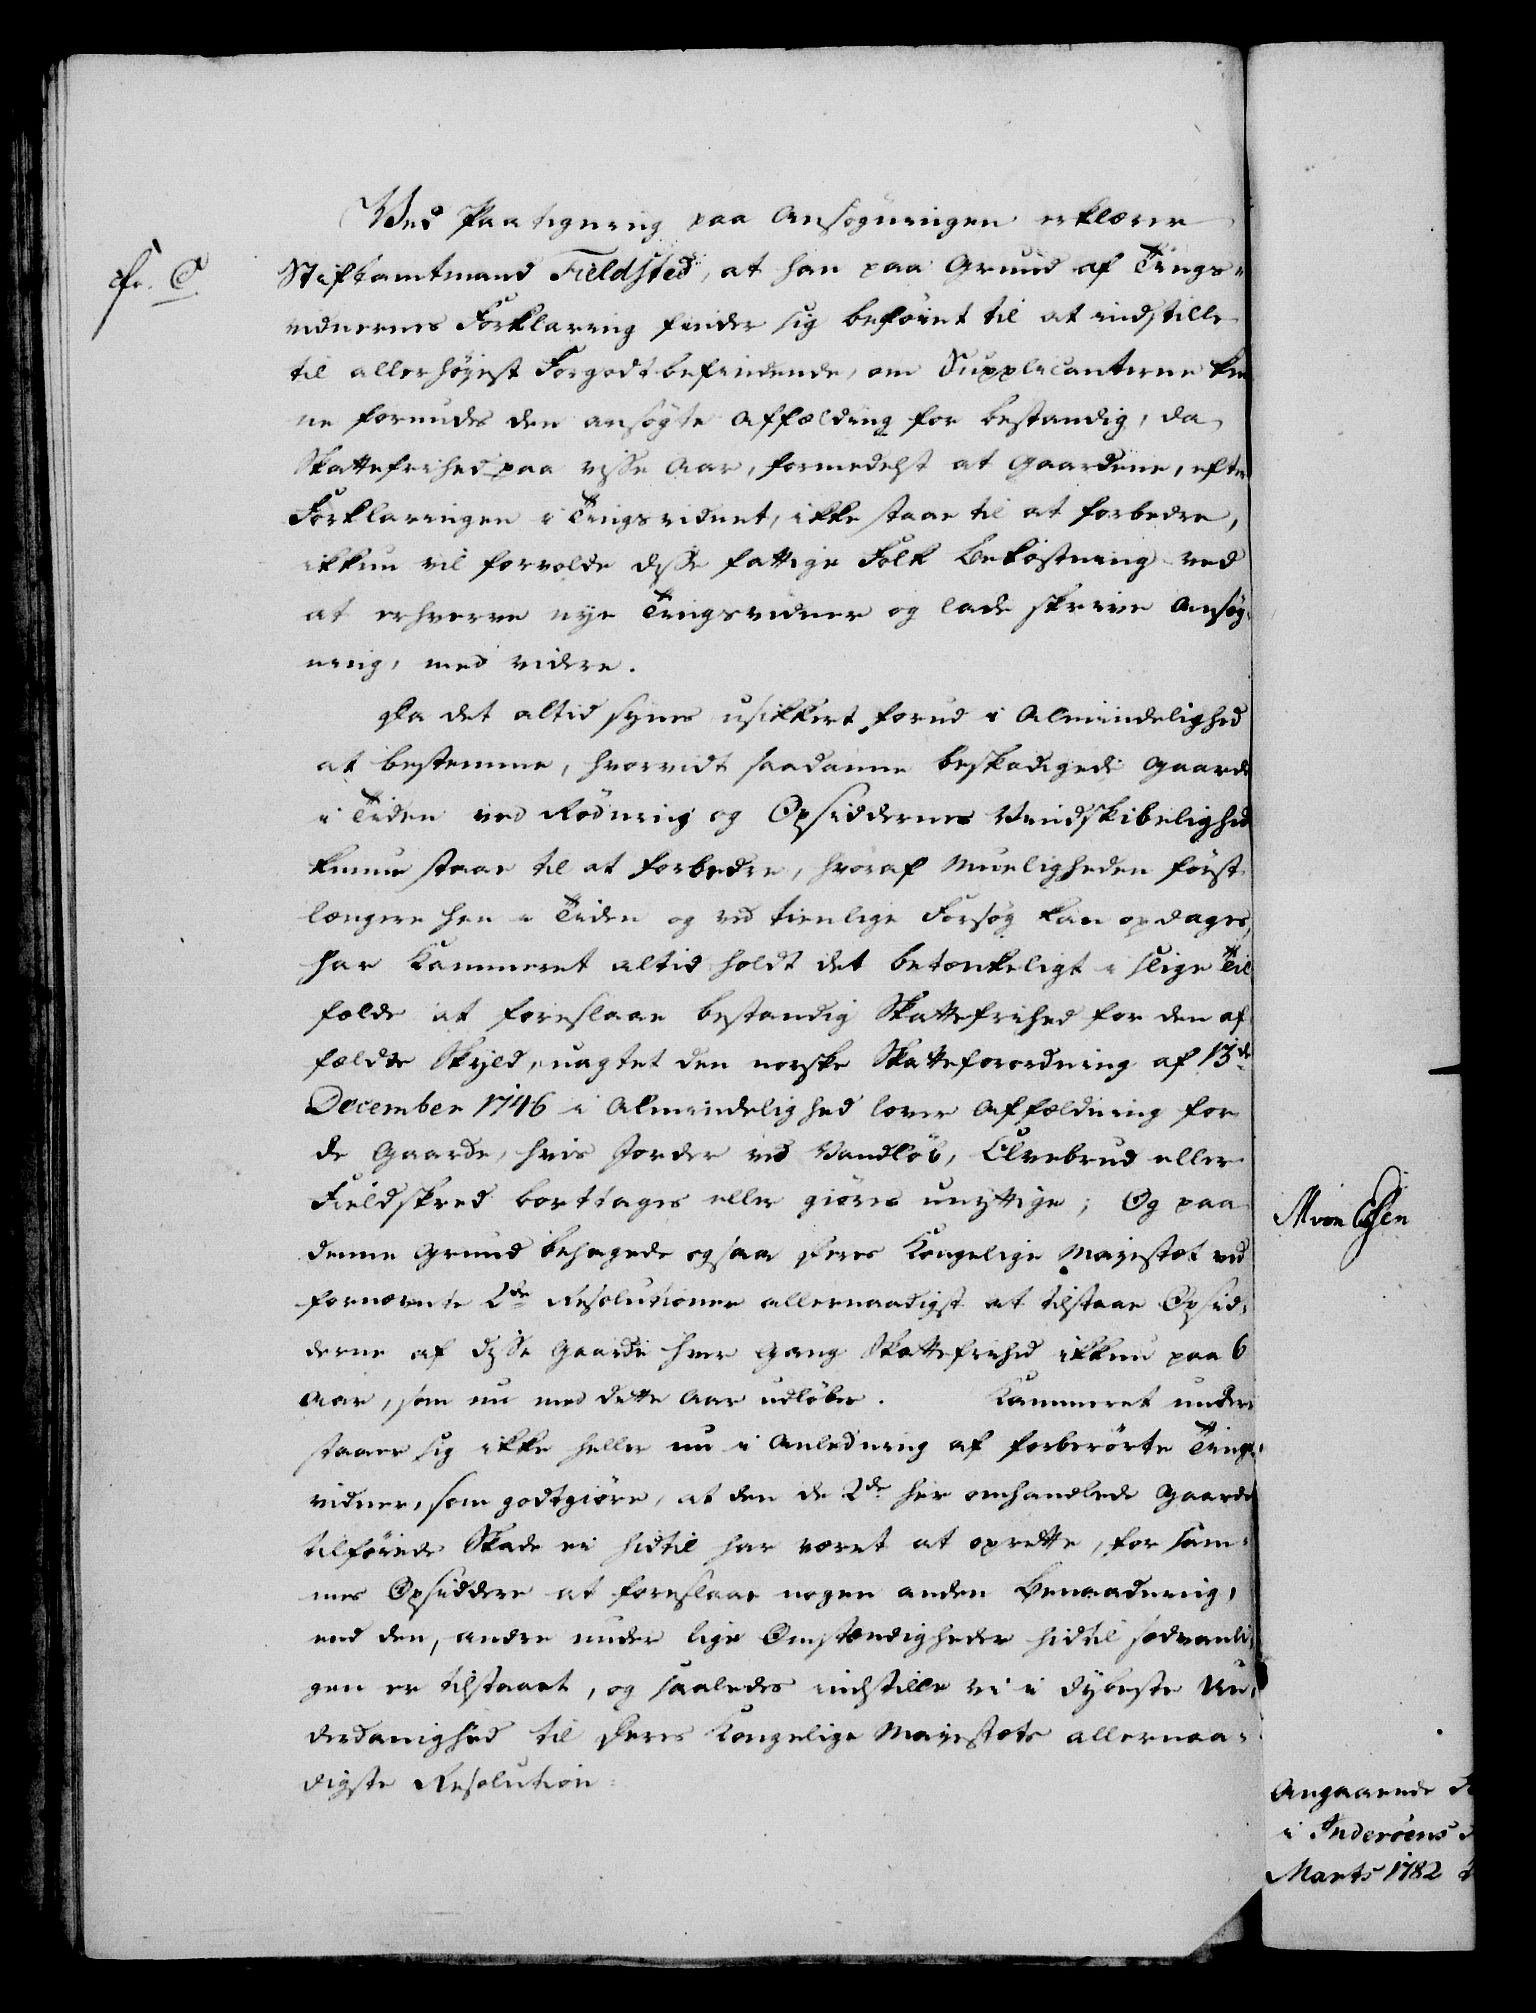 Ved Paategning paa Ansøgningen erklærer
cfr. C.
Stiftamtmand Fieldsted, at han paa Grund af Tings-
vidnernes Forklaring finder sig beføiet til at indstille
til allerhøyest Forgodtbefindende, om Supplicanterne kun-
ne forundes den ansøgte Affælding for bestandig, da
Skattefrihed paa visse Aar, formedelst at Gaardene, efter
Forklaringen i Tingsvidnet, ikke staae til at forbedre,
ikkun vil forvolde disse fattige Folk Bekostning ved
at erhverve nye Tingsvidner og lade skrive Ansøg-
ning, med videre.
Da det altid synes usikkert, forud i Almindelighed
at bestemme, hvorvidt saadanne beskadigede Gaarde
i Tiden ved Rødning og Opsiddernes Vindskibelighed
kunne staae til at forbedre, hvoraf Mueligheden først
længere hen i Tiden og ved tienlige Forsøg kan opdages,
har Kammeret altid holdt det betænkeligt i slige Til-
fælde at foreslaae bestandig Skattefrihed for den af-
fældte Skyld, uagtet den norske Skatteforordning af 13de
December 1746 i Almindelighed lover Affældning for
de Gaarde, hvis Jorder ved Vandløb, Elvebrud eller
Fieldskred borttages eller giøres unyttige; Og paa
denne Grund behagede ogsaa Deres Kongelige Majestæt ved
fornævnte 2de Resolutioner allernaadigst at tilstaae Opsid-
derne af disse Gaarde hver Gang Skattefrihed ikkun paa 6
Aar, som nu med dette Aar udløber. Kammeret under-
staaer sig ikke heller nu i Anledning af forberørte Tings-
vidner, som godtgiøre, at den de 2de her omhandlede Gaarde
tilføiede Skade ei hidtil har været at oprette, for sam-
mes Opsiddere at foreslaae nogen anden Benaadning,
end den, andre under lige Omstændigheder hidtil sædvanli-
gen er tilstaaet, og saaledes indstille vi i dybeste Un-
derdanighed til Deres Kongelige Majestæts allernaa-
digste Resolution:
M von Essen
Angaaende
i Inderøens
Marts 1782